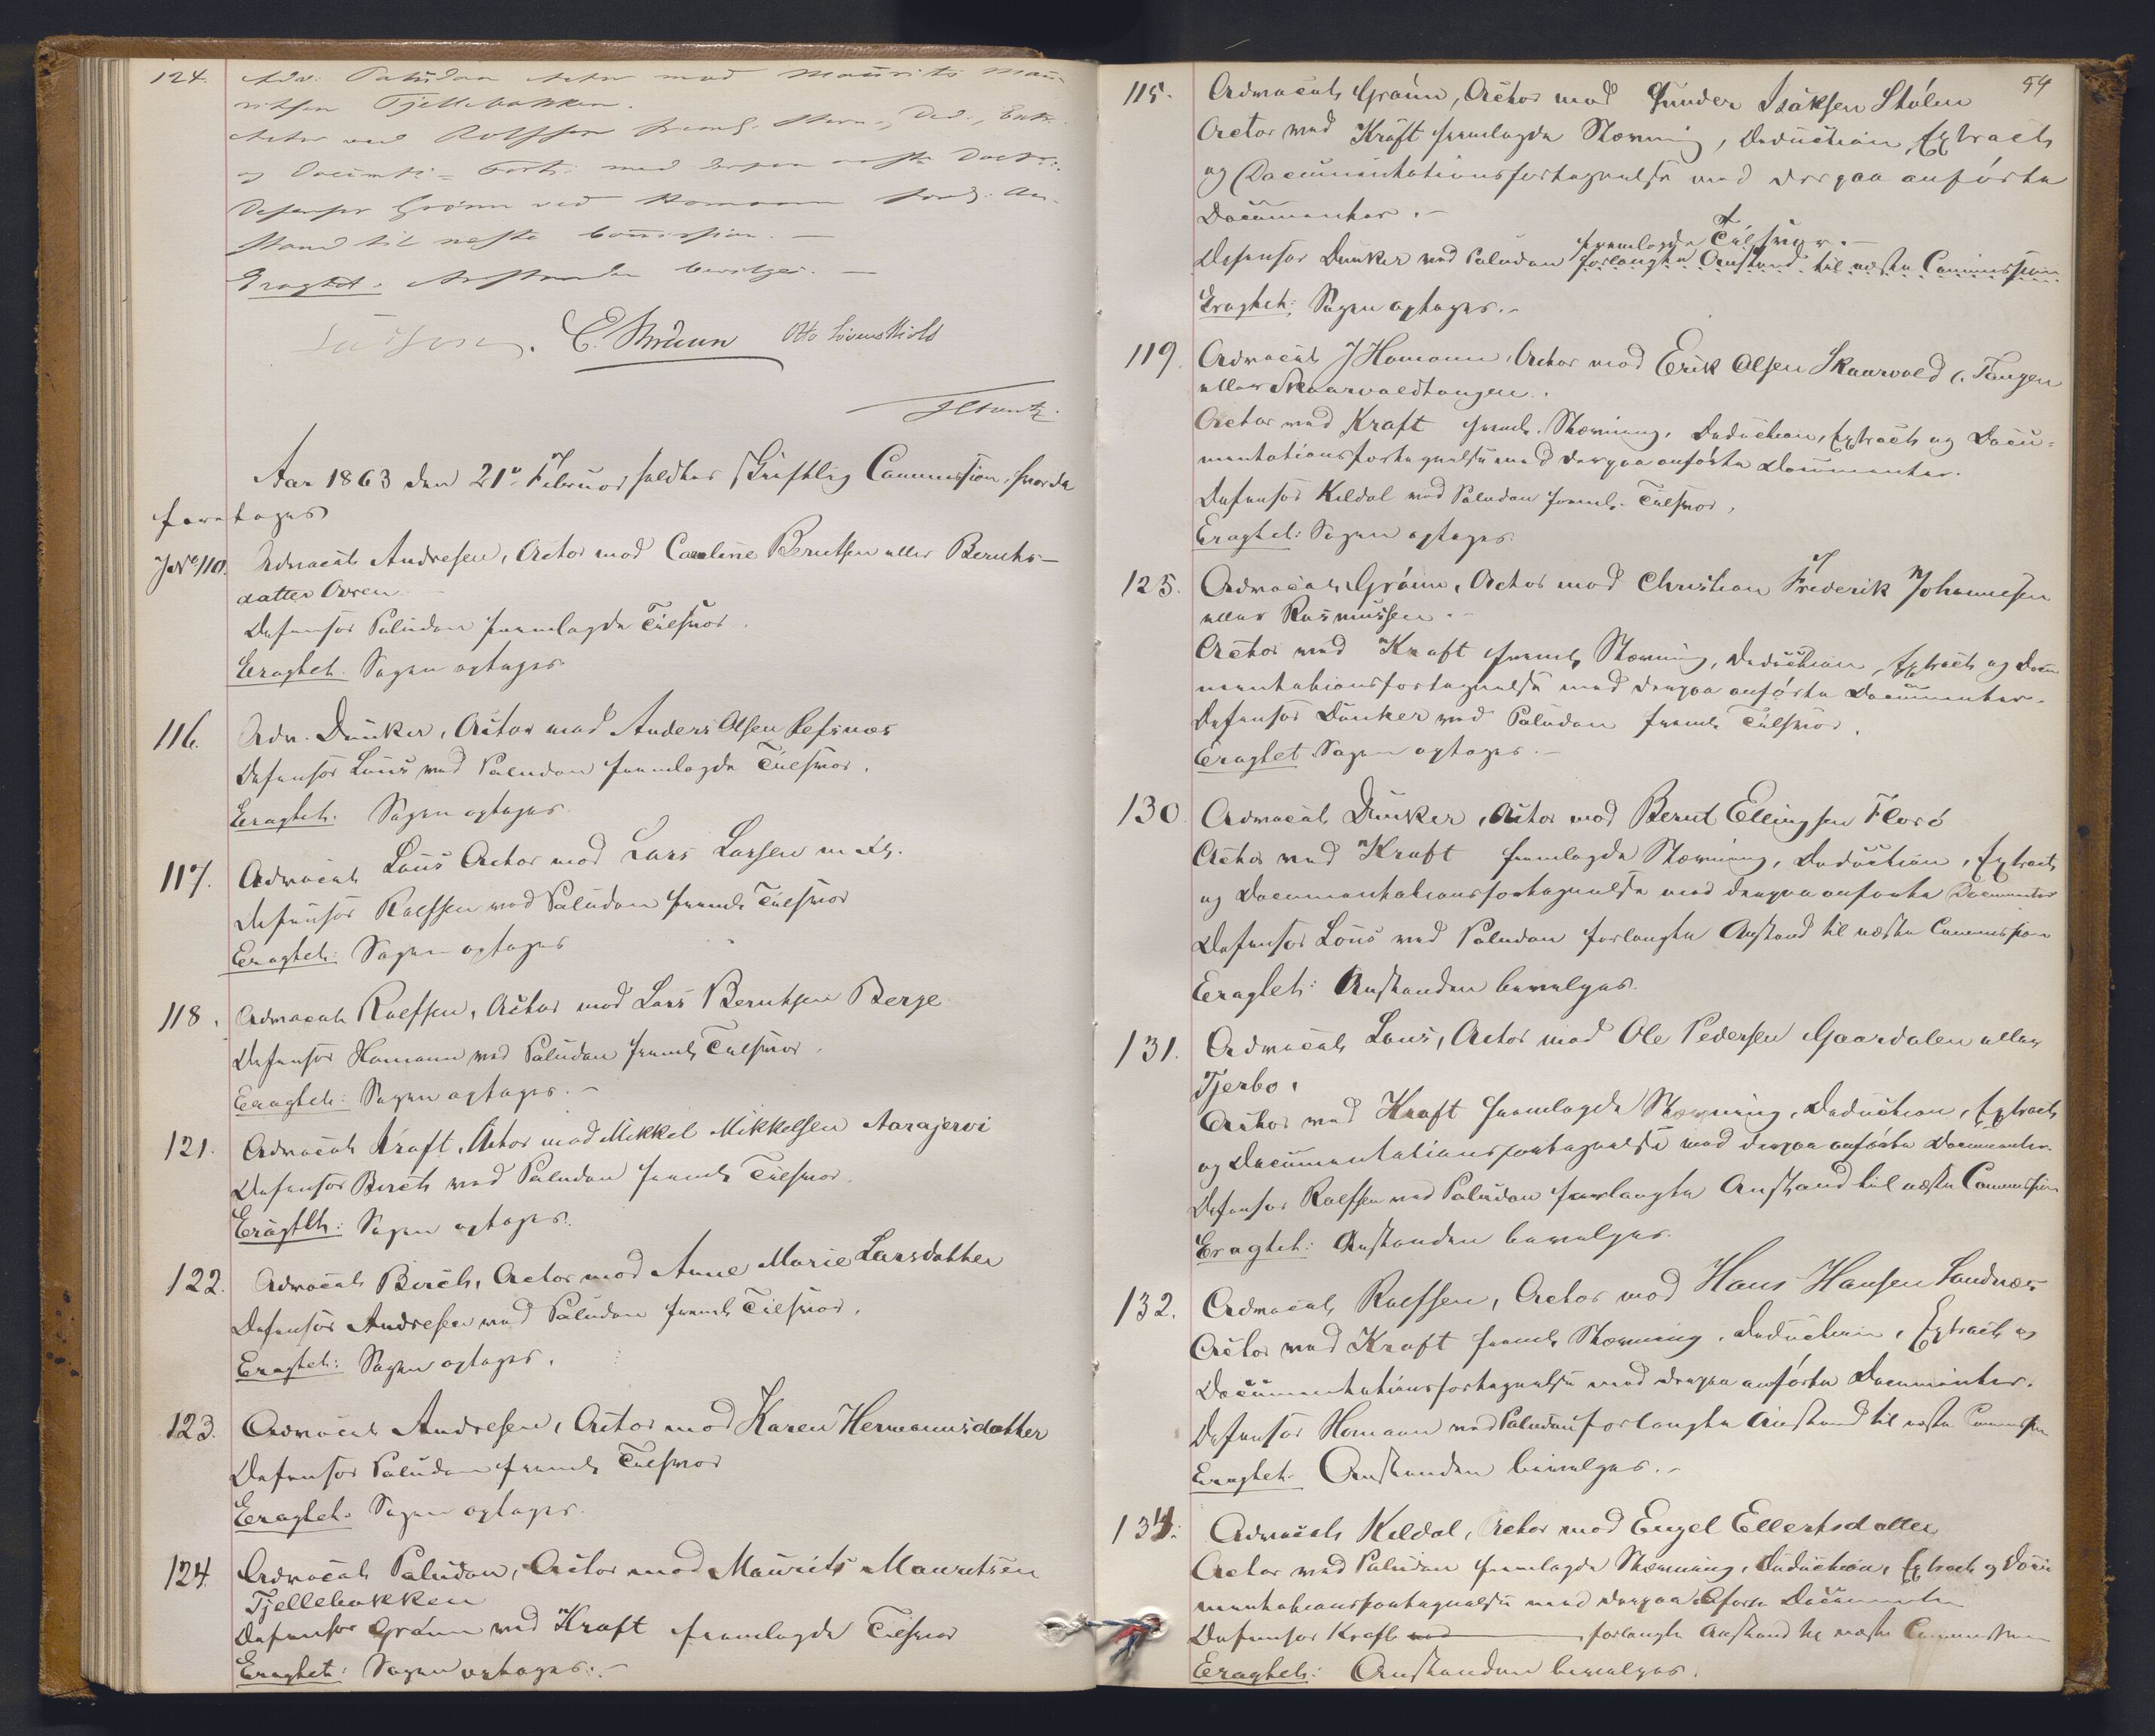 124. Adv. Paludan Actor mod Maurits Mau-
ritsen Tjellebakken.
Actor ved Rolfsen freml. Stevn., Ded., Extr.
og Documts= Fort. med derpaa anførte Docts.
Defensor Grønn ved Homann forl. An-
stand til næste Commission. —
Eragtet. Anstanden bevilges. —
E. Bruun Otto Løvenskiold
Aar 1863 den 21de Februar holdtes Skriftlig Commission, hvorda
foretoges
JNo 110. Advocat Andresen, Actor mod Caroline Berntsen eller Bernts-
datter Ovren.
Defensor Paludan fremlagde Tilsvar.
Eragtet. Sagen optages.
116. Adv. Dunker, Actor mod Anders Olsen Refsnæs
Defensor Lous ved Paludan fremlagde Tilsvar.
Eragtet. Sagen optages.
117. Advocat Lous Actor mod Lars Larsen m. fl.
Defensor Rolfsen ved Paludan freml. Tilsvar
Eragtet: Sagen optages
118. Advocat Rolfsen, Actor mod Lars Berntsen Berge
Defensor Homann ved Paludan freml. Tilsvar.
Eragtet: Sagen optages. —
121. Advocat Kraft, Actor mod Mikkel Mikkelsen Aarajervi
Defensor Birch ved Paludan freml. Tilsvar.
Eragtet: Sagen optages.
122. Advocat Birch, Actor mod Anne Marie Larsdatter
Defensor Andresen ved Paludan freml. Tilsvar.
Eragtet: Sagen optages.
123. Advocat Andresen, Actor mod Karen Hermannsdatter
Defensor Paludan freml. Tilsvar
Eragtet. Sagen optages.
124. Advocat Paludan, Actor mod Maurits Mauritsen
Tjellebakken
Defensor Grønn ved Kraft fremlagde Tilsvar
Eragtet: Sagen optages. —
54
115. Advocat Grønn, Actor mod Gunder Isaksen Stølen
Actor ved Kraft fremlagde Stævning, Deduction, Extract
og Documentationsfortegnelse med derpaa anførte
Documenter. —
fremlagde Tilsvar. —
Defensor Dunker ved Paludan forlangte Anstand til næste Commission.
Eragtet: Sagen optages. —
119. Advocat J Homann, Actor mod Erik Olsen Skaarvold c. Tangen
eller Skaarvoldtangen.
Actor ved Kraft freml. Stævning, Deduction, Extract og Docu-
mentationsfortegnelse med derpaa anførte Documenter.
Defensor Kildal ved Paludan freml. Tilsvar,
Eragtet: Sagen optages.
125. Advocat Grønn, Actor mod Christian Frederik Johannesen
eller Rasmussen. —
Actor ved Kraft freml. Stævning, Deduction, Extract og Docu
mentationsfortegnelse med derpaa anførte Documenter.
Defensor Dunker ved Paludan freml. Tilsvar.
Eragtet Sagen optages. —
130. Advocat Dunker, Actor mod Bernt Ellingsen Florø
Actor ved Kraft fremlagde Stævning, Deduction, Extract
og Documentationsfortegnelse med derpaa anførte Documenter
Defensor Lous ved Paludan forlangte Anstand til næste Commission
Eragtet: Anstanden bevilges.
131. Advocat Lous, Actor mod Ole Pedersen Gaardalen eller
Tjerbo.
Actor ved Kraft fremlagde Stævning, Deduction, Extract
og Documentationsfortegnelse med derpaa anførte Documenter.
Defensor Rolfsen ved Paludan forlangte Anstand til næste Commission
Eragtet: Anstanden bevilges.
132. Advocat Rolfsen, Actor mod Hans Hansen Sandnæs
Actor ved Kraft freml. Stævning, Deduction, Extract og
Documentationsfortegnelse med derpaa anførte Documenter.
Defensor Homann ved Paludan forlangte Anstand til næste Commission
Eragtet. Anstanden bevilges. —
134. Advocat Kildal, Actor mod Engel Ellertsdatter
Actor ved Paludan fremlagde Stævning, Deduction, Extract og Docu
mentationsfortegnelse med derpaa anførte Documenter
Defensor Kraft ved forlangte Anstand til næste Commission
Eragtet: Anstanden bevilges.